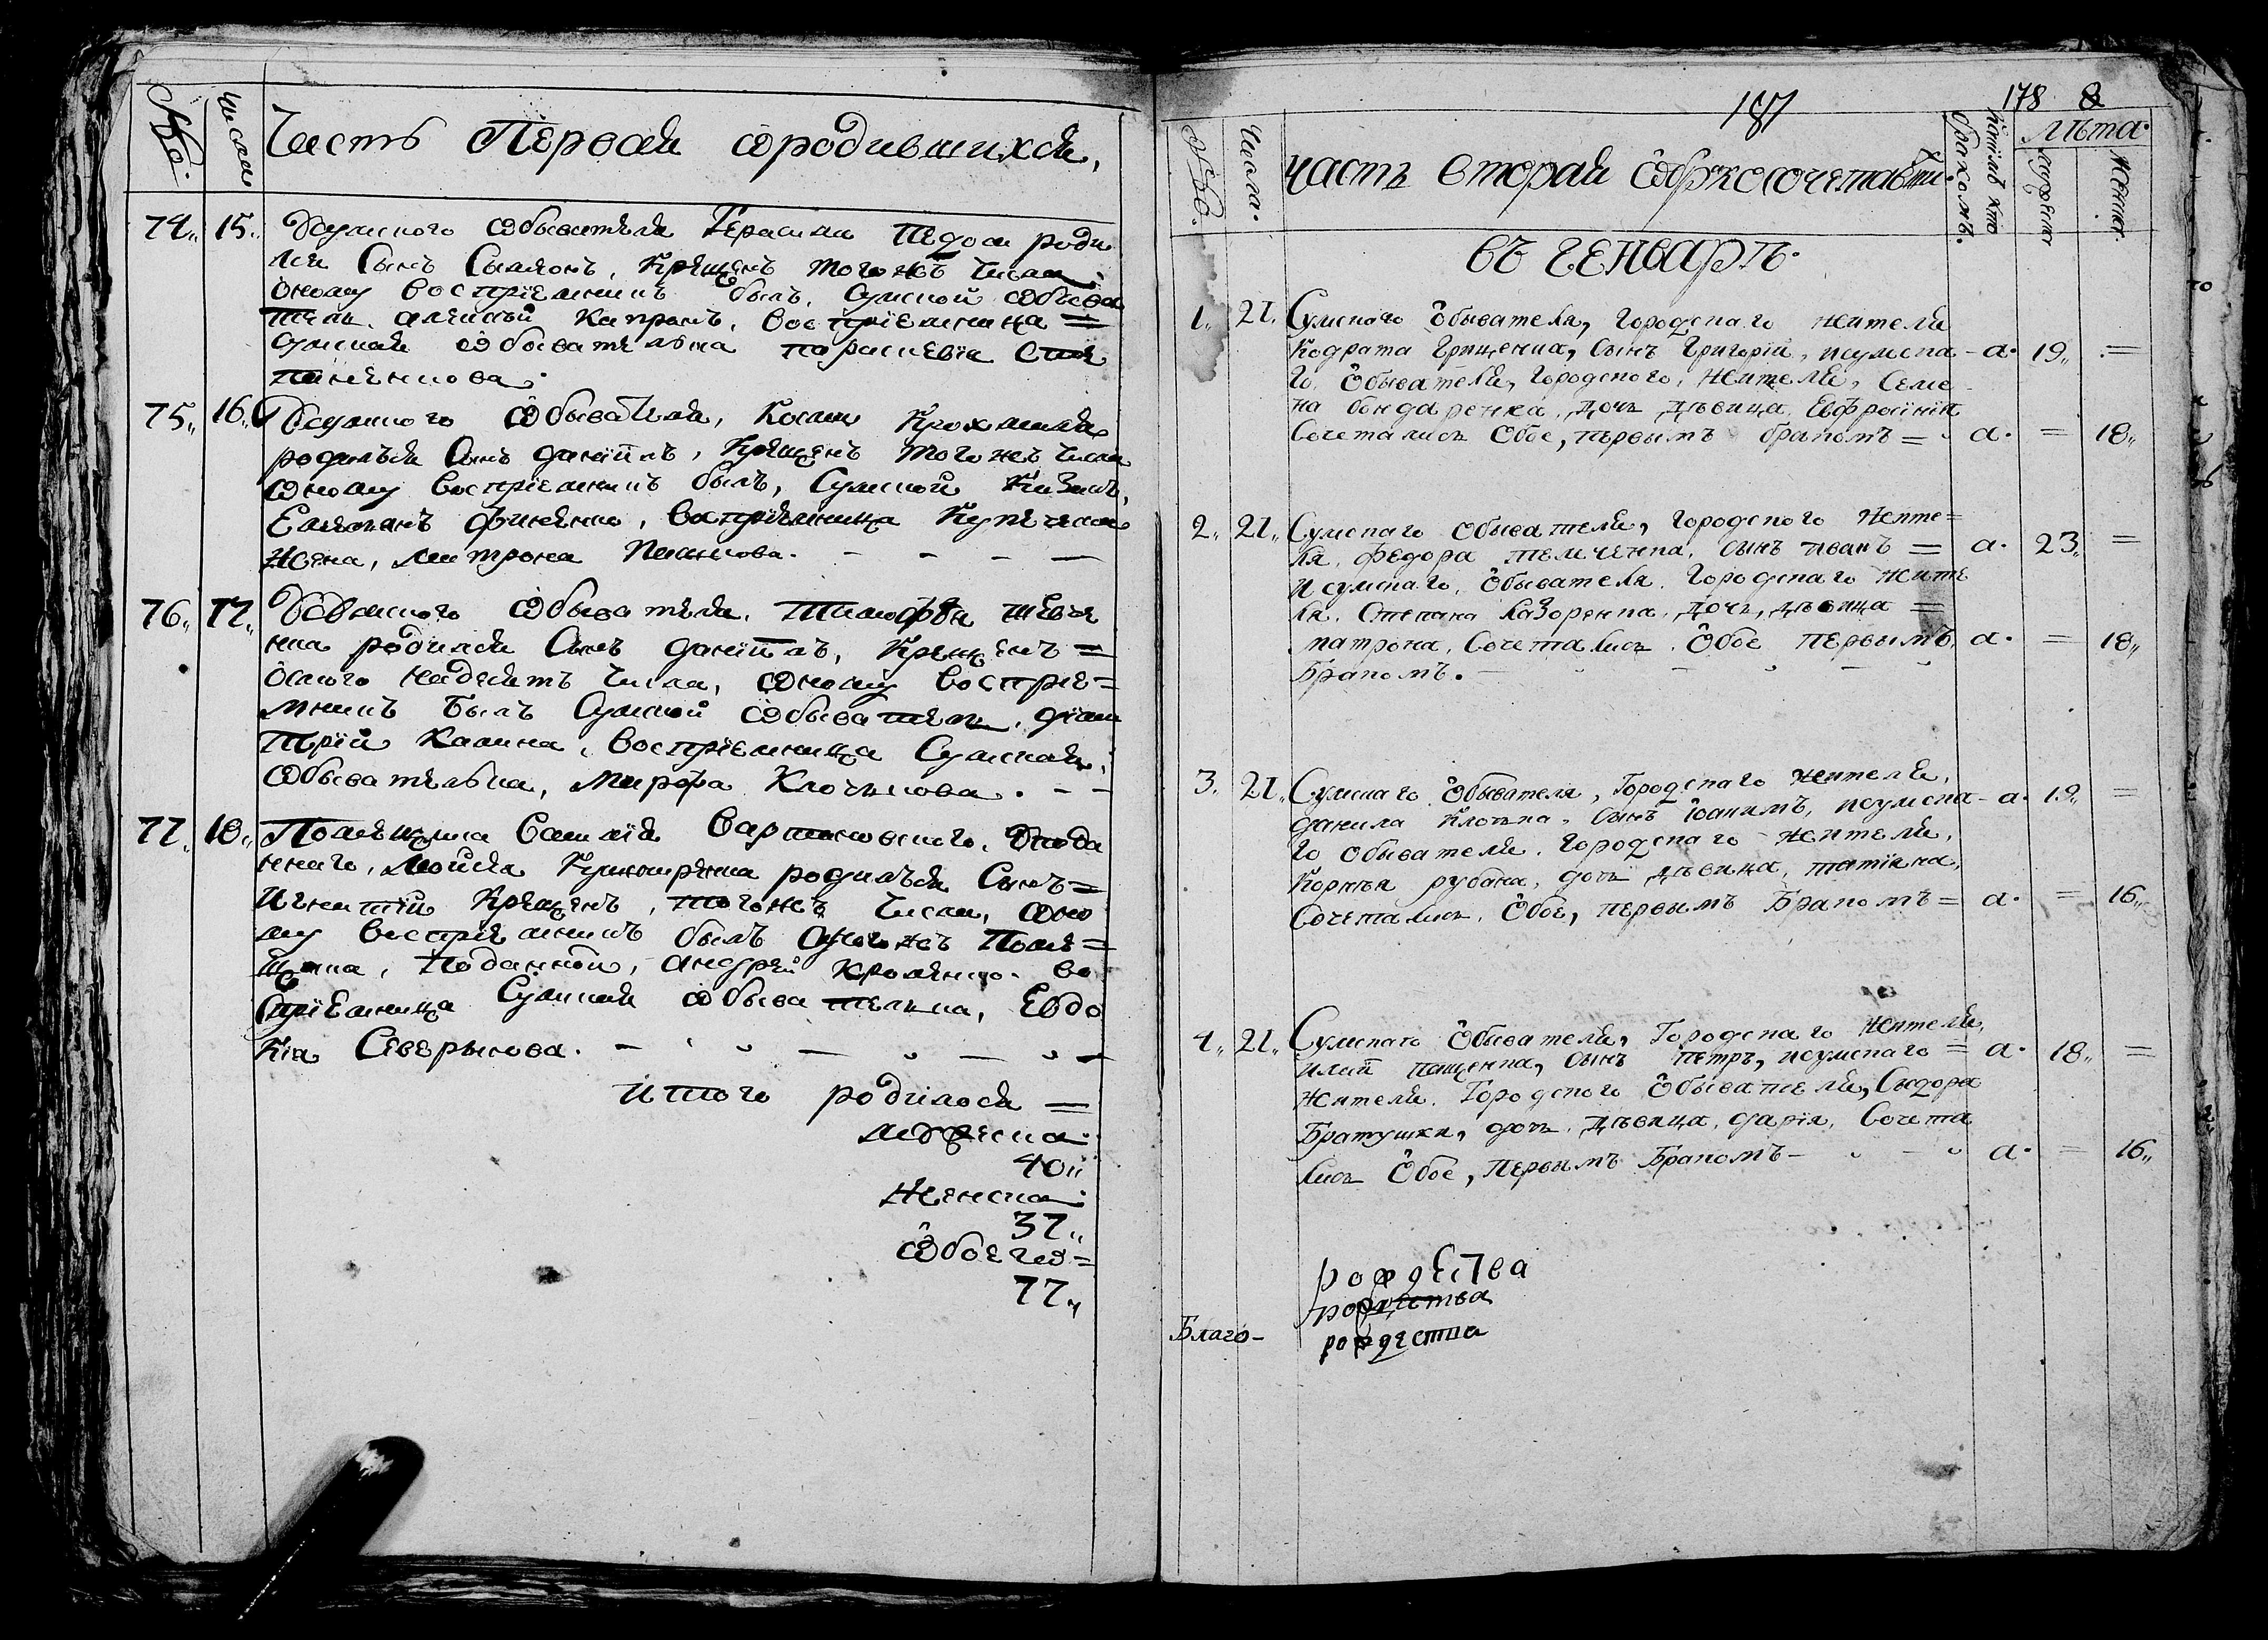 №. Числа Часть Первая ѡродившихся,
74,, 15. Усумского ѡбывателя Герасима роди
лся Сынъ Симеонъ, Крещенъ тогожъ Числа
оному восприемникъ былъ, Сумской ѡбыва
тель, алексѣй восприемница =
Сумская ѡбывателька параскевїа Сте
паненкова.
75,, 16. Усумского ѡбывателя, Козмы Крохмаля
родился Сынъ данїилъ, Крещенъ тогожъ Числа
ѡному восприемникъ былъ, Сумской Козакъ,
восприемница Купецкая
жена, матрона Пѣшкова. — — — —
76,, 17,, Усумского ѡбывателя, тимофѣя шевче
нка родился Сынъ данїилъ, Крещенъ =
осмого надесять Числа, ѡному восприе=
мникъ былъ Сумской ѡбыватель, дїми
трїй Калина, восприемница Сумская,
ѡбывателька, марфа Клочкова. — —
77,, 18,, Помѣщика Василїя подда
ннаго, Моѵсея родился Сынъ =
Игнатїй Крещенъ, тогожъ Числа, ѡно
му восприемникъ былъ Помѣ=
щика, Поданной, андрей во
сприемница Сумская ѡбывателька, Евдо
кїа Сѣверынова. — — — —
итого родилося =
мужеска
40,,
женска
37,,
ѡбоего=
77,,
187 178 8
№. Числа. часть вторая ѡбрꙋкосочетавши. которымъ кто бракомъ. лѣта. мужеска женска
въ генварѣ.
1,, 21. Сумскаго обывателя, городскаго жителя
Кодрата Грищенка, сынъ Григорїй, исумска - а. 19,, =
го, обывателя, городского, жителя, Семе
на бондаренка, дочь дѣвица, Евфросинїя
Сочетались обое, первымъ бракомъ = а. = 18,,
2,, 21,, Сумскаго обывателя, городского жите=
ля, федора темченка, сынъ иванъ = а. 23,, =
Исумскаго, обывателя, городскаго жите
ля, Степана Лазоренка, дочь, дѣвица =
матрона, сочетались, обое первымъ, а. = 18,,
бракомъ. —
3,, 21,, Сумскаго обывателя, городскаго жителя,
данила Клочка, сынъ Iоакимъ, исумска - а. 19,, =
го обывателя, городскаго жителя,
Корнѣя рубана, дочь дѣвица, татїана,
Сочетались, обое, первымъ бракомъ = а. = 16,,
4,, 21,, Сумскаго обывателя, городскаго жителя,
илїи пащенка, сынъ петръ, исумскаго = а. 18,, =
жителя, городского обывателя, Сидора
братушки, дочь, дѣвица, дарїя, сочета
лись обое, первымъ бракомъ — а. = 16,,
рождества
рождества
Благо- рождества